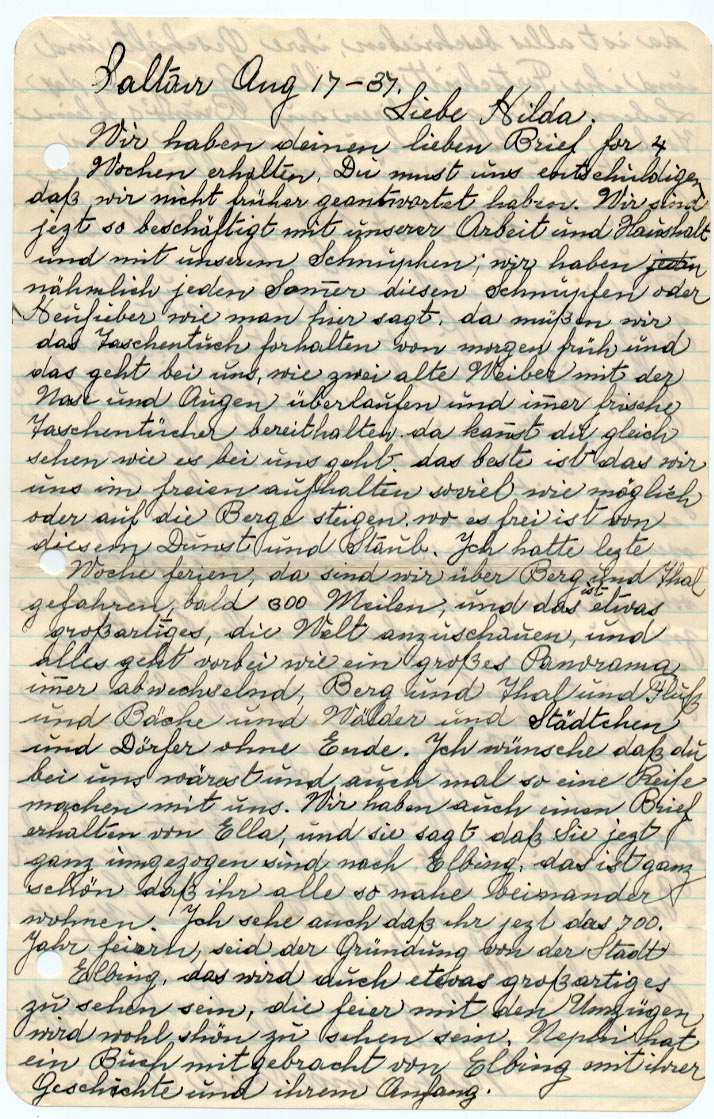 Saltair Aug 17-37.
Liebe Hilda.
Wir haben deinen lieben Brief for 4
Wochen erhalten. Du must uns entschuldigen,
daß wir nicht früher geantwortet haben. Wir sind
jezt so beschäftigt mit unserer Arbeit und Haushalt
und mit unserem Schnuphen; wir haben
nähmlich jeden Som̄er diesen Schnupfen oder
Heufieber wie man hier sagt. da müßen wir
das Taschentuch forhalten von morgen früh und
das geht bei uns, wie zwei alte Weiber mit der
Nase und Augen überlaufen und im̄er frische
Taschentücher bereithalten. da kan̄st du gleich
sehen wie es bei uns geht. das beste ist das wir
uns im freien aufhalten soviel wie möglich
oder auf die Berge steigen wo es frei ist von
diesem Dunst und Staub. Ich hatte lezte
Woche ferien, da sind wir über Berg und Thal
gefahren, bald 300 Meilen, und das ist etwas
großartiges, die Welt anzuschauen, und
alles geht vorbei wie ein großes Panorama
im̄er abwechselnd, Berg und Thal und Fluß
und Bäche und Wälder und Städtchen
und Dörfer ohne Ende. Ich wünsche daß du
bei uns wärest und auch mal so eine Reise
machen mit uns. Wir haben auch einen Brief
erhalten von Ella, und sie sagt daß Sie jezt
ganz umgezogen sind nach Elbing. das ist ganz
schön daß ihr alle so nahe beinander
wohnen. Ich sehe auch daß ihr jezt das 700.
Jahr feiern, seid der Gründung von der Stadt
Elbing, das wird auch etwas großartiges
zu sehen sein, die feier mit den Umzügen
wird wohl shön zu sehen sein. Nephi hat
ein Buch mitgebracht von Elbing mit ihrer
Geschichte und ihrem Anfang.